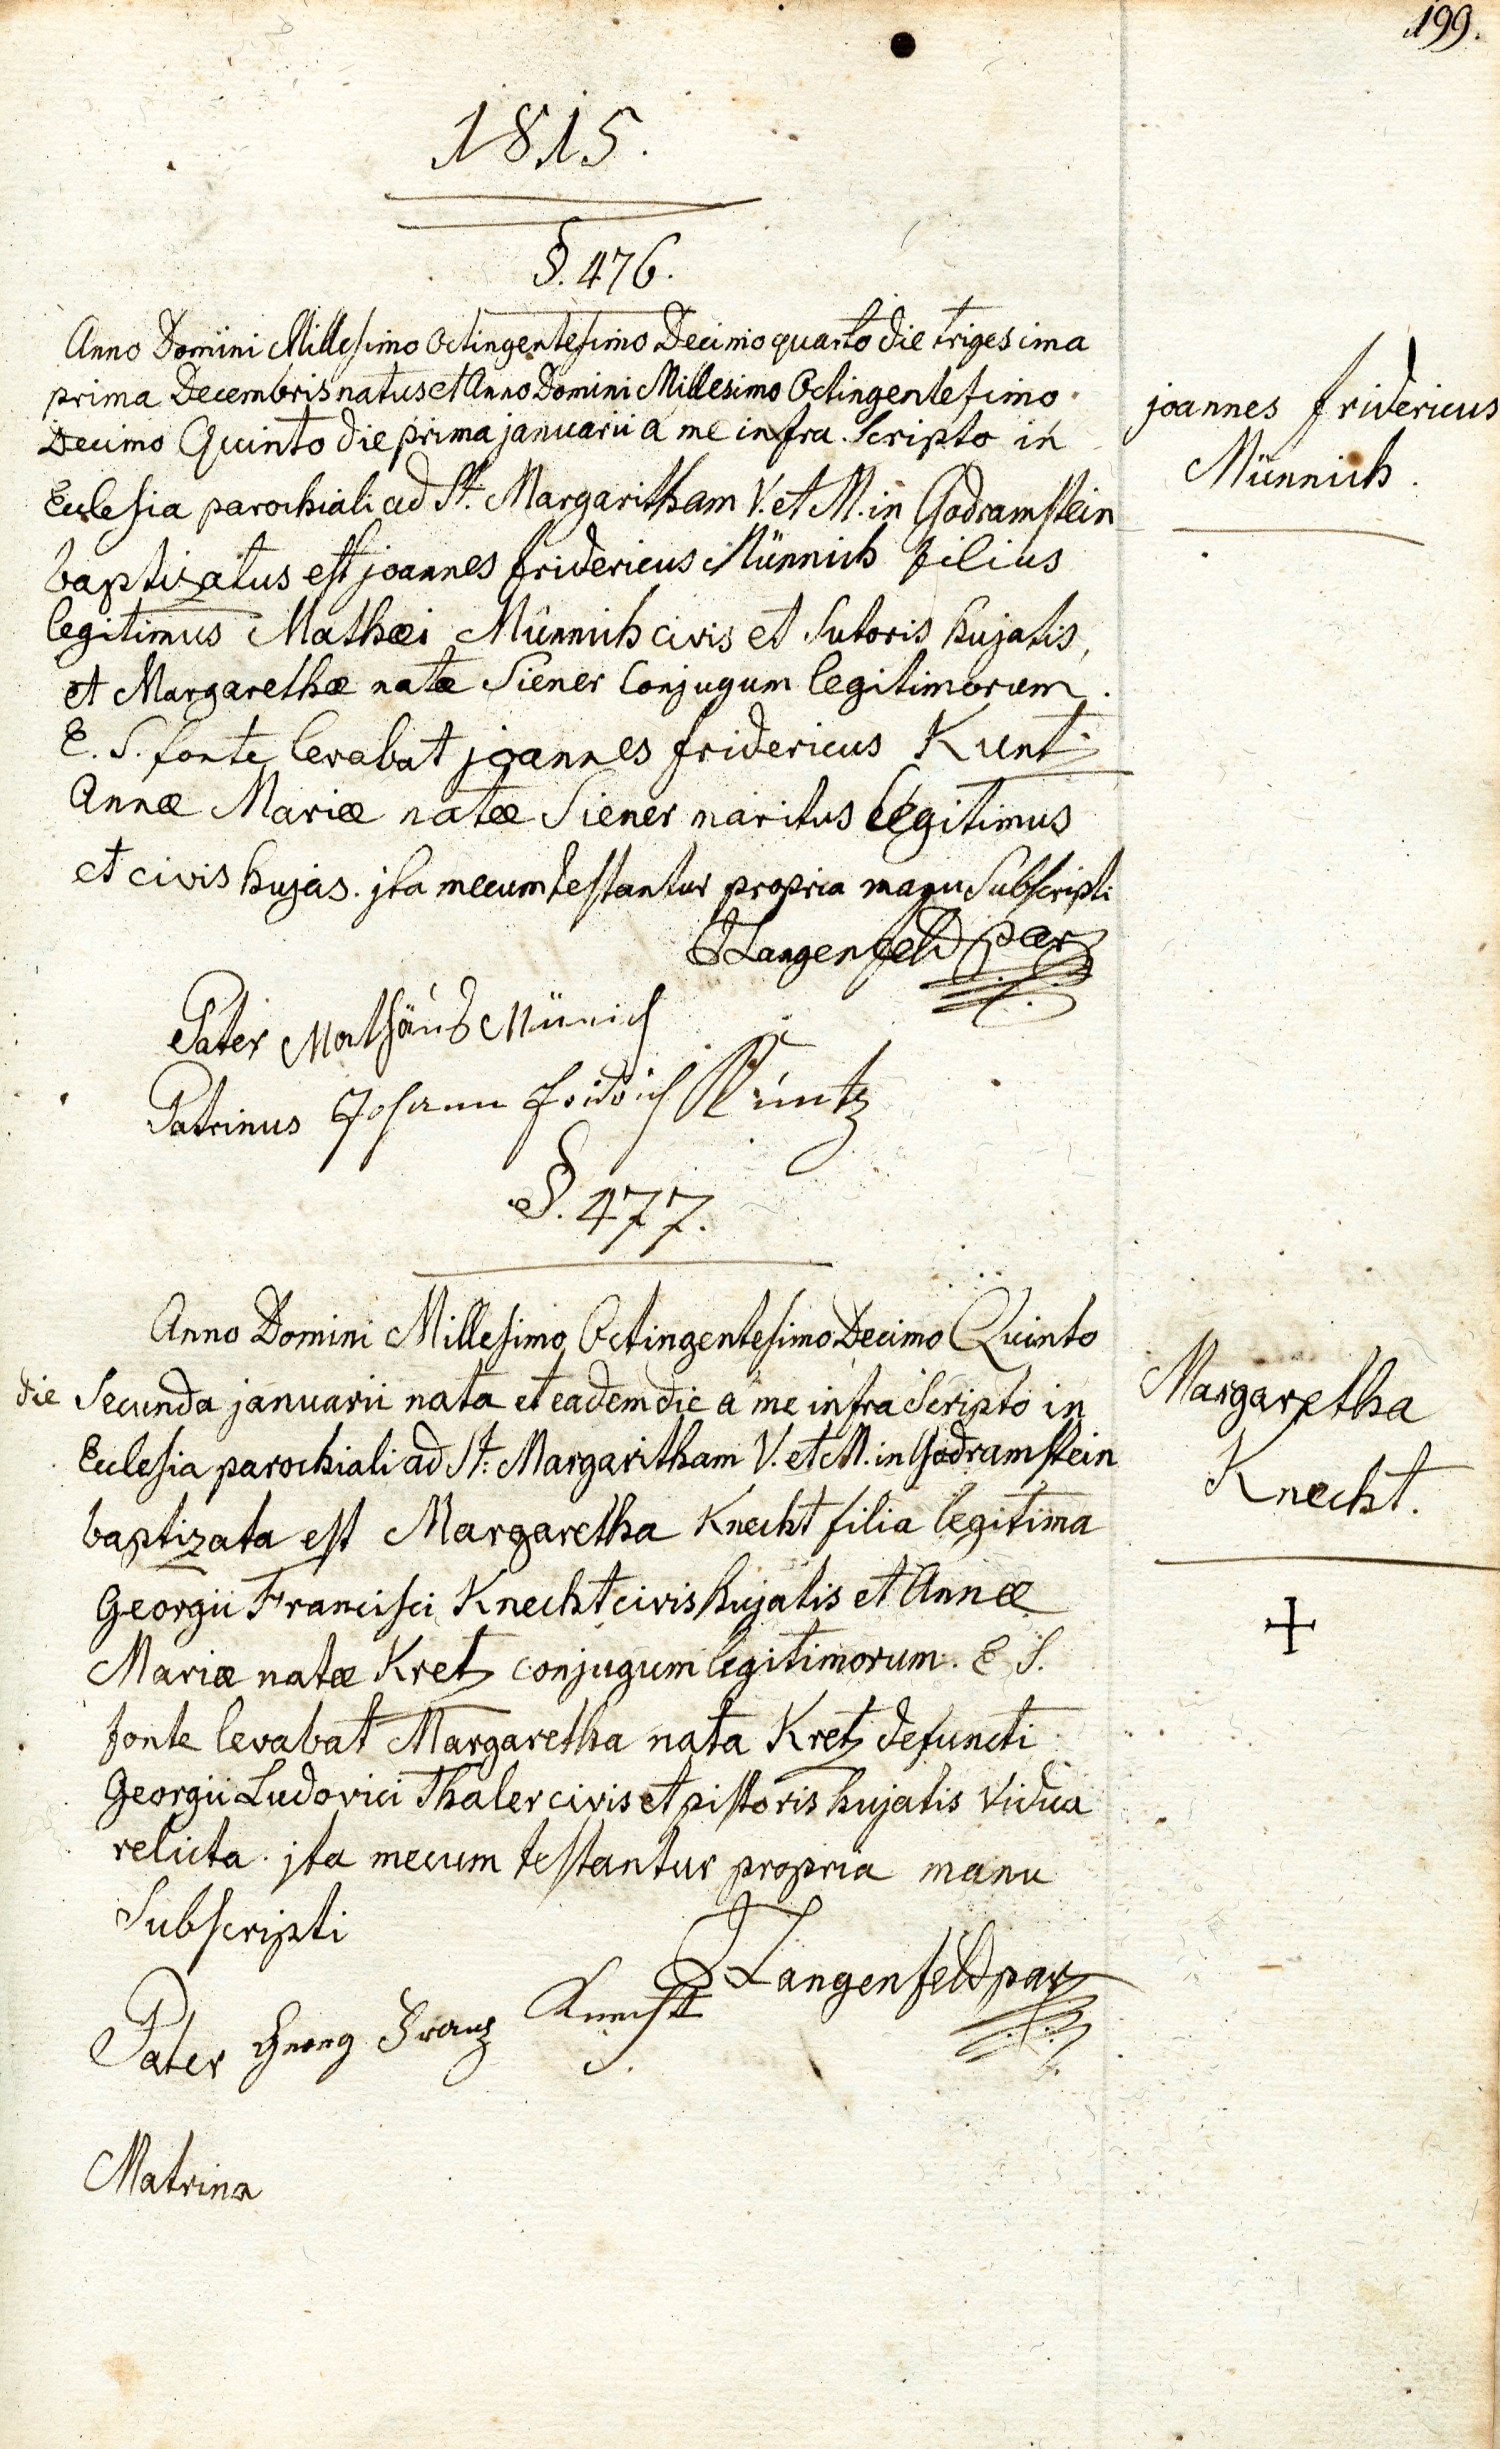 199.
1815.
§. 476.
Anno Domini Millesimo Octingentesimo Decimo quarto die trigesima
prima Decembris natus et Anno Domini Millesimo Octingentesimo
Decimo Quinto die prima januarii a me infra Scripto in
Eclesia parochiali ad St. Margaritham V. et M. in Godramstein
baptizatus est joannes fridericus Münnich filius
legitimus Mathæi Münnich civis et Sutoris hujatis,
et Margarethæ natæ Siener Conjugum legitimorum.
E. S. fonte levabat joannes fridericus Kuntz
Annæ Mariæ natæ Siener maritus legitimus
et civis hujas. jta mecum testantur propria manu Subscripti
Langenfeld par
Pater Mathäus Münich
Patrinus Johann Fridrich Kuntz
joannes fridericus
Münnich.
§. 477.
Anno Domini Millesimo Octingentesimo Decimo Quinto
die Secunda januarii nata et eadem die a me infra Scripto in
Eclesia parochiali ad St. Margaritham V. et M. in Godramstein
baptizata est Margaretha Knecht filia legitima
Georgii Francisci Knecht civis hujatis et Annæ
Mariæ natæ Kretz conjugum legitimorum. E S.
fonte levabat Margaretha nata Kretz defuncti
Georgii Ludovici Thaler civis et pistoris hujatis vidua
relicta. jta mecum testantur propria manu
Subscripti
Langenfeld par
Pater Georg Franz Knecht
Matrina
Margaretha
Knecht.